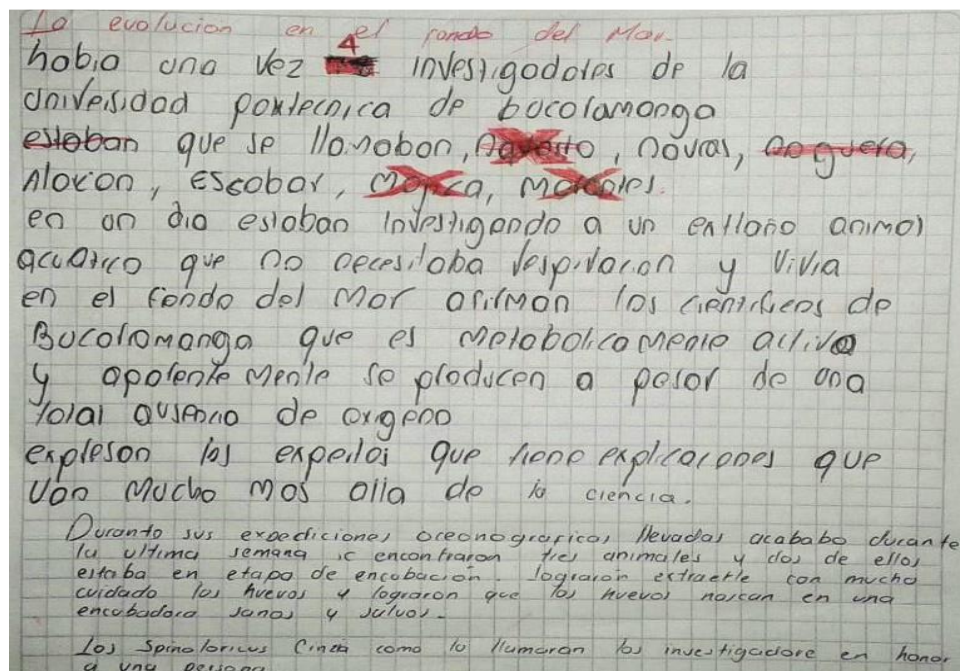 La evolucion en el fondo del Mar.
habia una vez 4 investigadores de la
universidad politecnica de bucolamanga
estaban que se llamaban, Navarro, navas, noguera,
Alarcon, escobar, Mojica, Morales.
en un dia estaban investigando a un extraño animal
acuatico que no necesitaba respiracion y vivia
en el fondo del mar afirman los cientificos de
Bucolomanga que es metabolicamente activo
y aparente mente se producen a pesar de una
total ausencia de oxigeno
expresan los expertos que tiene explicaciones que
van mucho mas alla de la ciencia.
Durante sus expediciones oceonograficas llevadas acababo durante
la ultima semana se encontraron tres animales y dos de ellos
estaba en etapa de encobación. lograron extraerle con mucho
cuidado los huevos y lograron que los huevos nascan en una
encubadora sanos y salvos.
Los como lo llamaron los investigadore en honor
a una persona